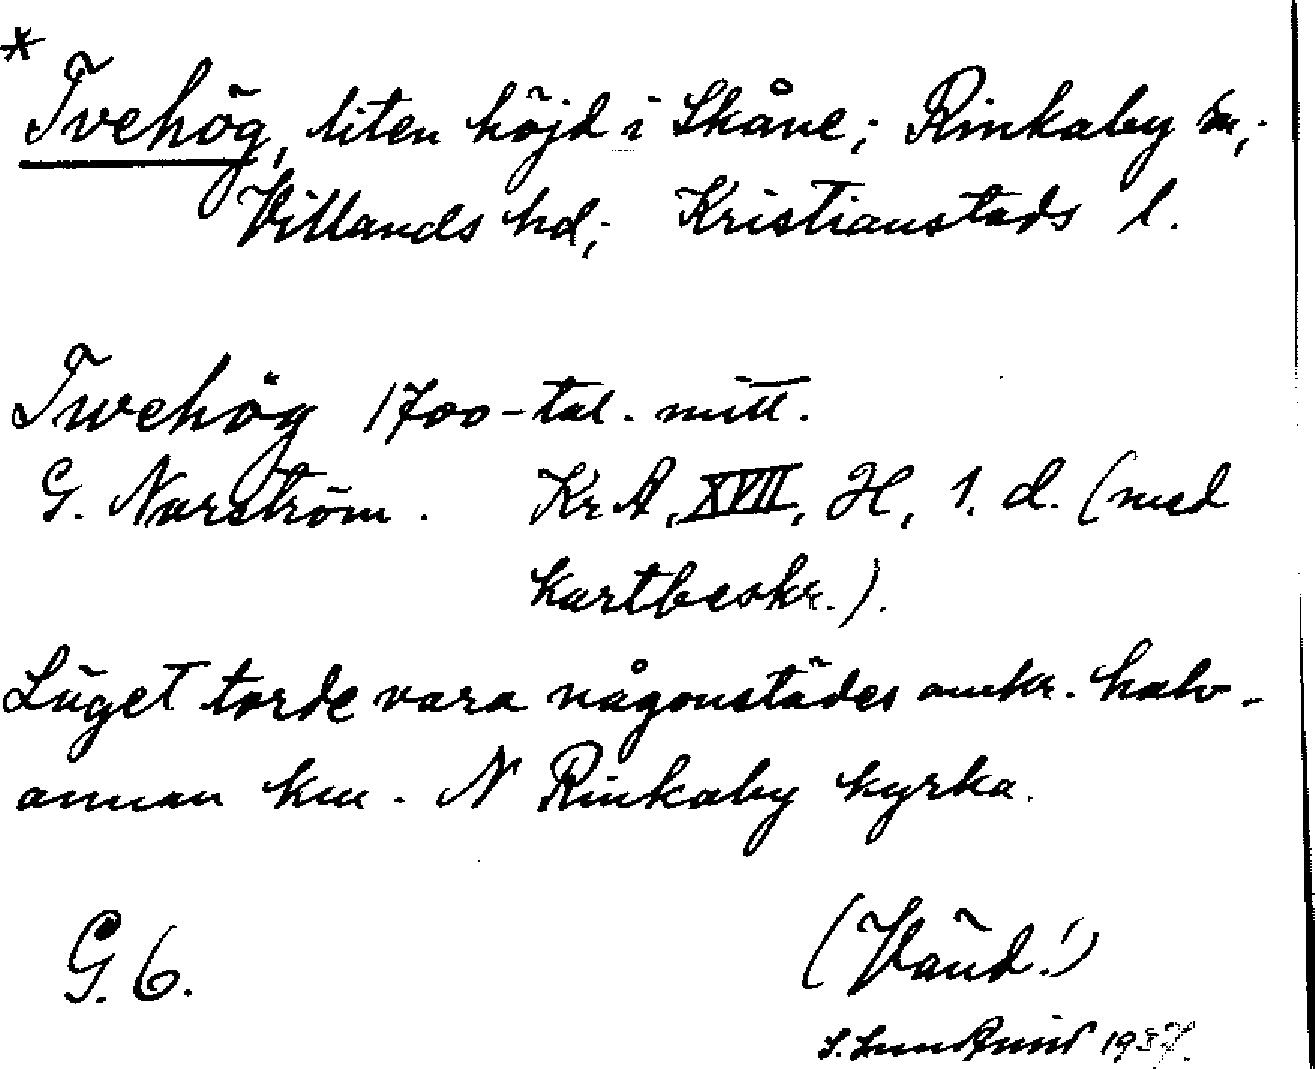 *
Tvehög, liten höjd i Skåne; Rinkaby sn;
Villands hd; Kristianstads l.
Twehög 1700-tal. mitt.
G. Narström. KrA, XVII, H, 1. d. (med
kartbeskr.).
Läget torde vara någonstädes omkr. halv-
annan km. N Rinkaby kyrka.
G. 6.
(Vänd!)
1937.